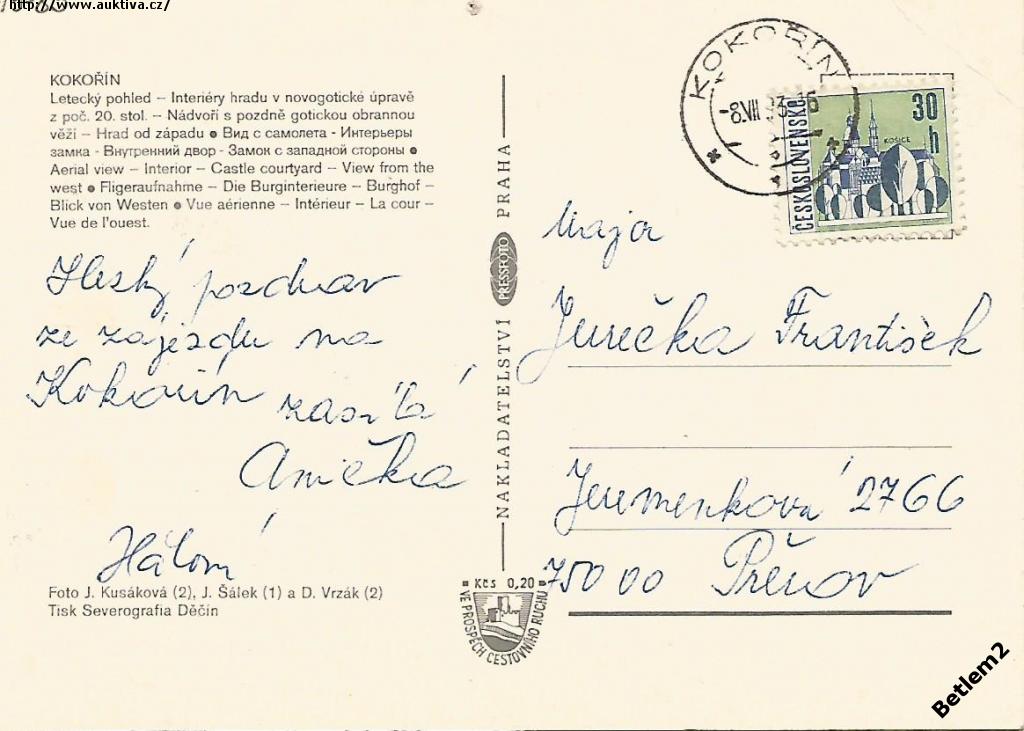 http://www.auktiva.cz/
KOKOŘÍN
Letecký pohled – Interiéry hradu v novogotické úpravě
z poč. 20. stol. – Nádvoří s pozdně gotickou obrannou
věží – Hrad od západu ● Вид с самолета - Интерьеры
замка - Внутренний двор - Замок с западной стороны ●
Aerial view – Interior – Castle courtyard – View from the
west ● Fligeraufnahme – Die Burginterieure – Burghof –
Blick von Westen ● Vue aérienne – Intérieur – La cour –
Vue de l'ouest.
Hezký pozdrav
ze zájezdu na
Kokořín zasílá
Anička
Hálová
Foto J. Kusáková (2), J. Šálek (1) a D. Vrzák (2)
Tisk Severografia Děčín
NAKLADATELSTVÍ PRESSFOTO PRAHA
Kčs 0,20
VE PROSPĚCH CESTOVNÍHO RUCHU
KOKOŘÍN
-8.VII 93-16
ČESKOSLOVENSKO
30 h
KOŠICE
Jurečka František
Jeremenkova 2766
750 00 Přerov
Betlem2